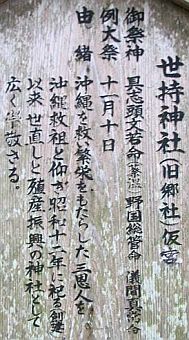 世持神社(旧郷社)仮宮
御祭神 具志頭文若命(蔡温) 野国総管命 儀間真常命
例大祭 十一月十日
由緒 沖縄を救い繁栄をもたらした三恩人を
沖縄救祖と仰ぎ昭和十二年に祀る(創建)
以来世直しと殖産振興の神社として
広く崇敬さる。